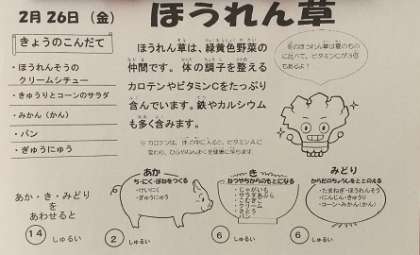 2月 26日 (金)
ほうれん草
きょうのこんだて
・ほうれんそうの
クリームシチュー
・きゅうりとコーンのサラダ
・みかん(かん)
・パン
・ぎゅうにゅう
ほうれん草は、緑黄色野菜の
仲間です。体の調子を整える
カロテンやビタミンCをたっぷり
含んでいます。鉄やカルシウム
も多く含みます。
冬のほうれん草は夏のもの
に比べて、ビタミンCが3倍
もあるよ!
あか・き・みどり
を
あわせると
14 しゅるい
あか
ち・にく・ほねをつくる
・ぎゅうにゅう
2 しゅるい
き
ねつやちからのもとになる
・じゃがいも
・サラダあぶら
・こむぎこ
・クリーム
・さとう
・パン
6 しゅるい
みどり
からだのちょうしをととのえる
・たまねぎ・ほうれんそう
・にんじん・きゅうり
・コーン・みかん(かん)
6 しゅるい